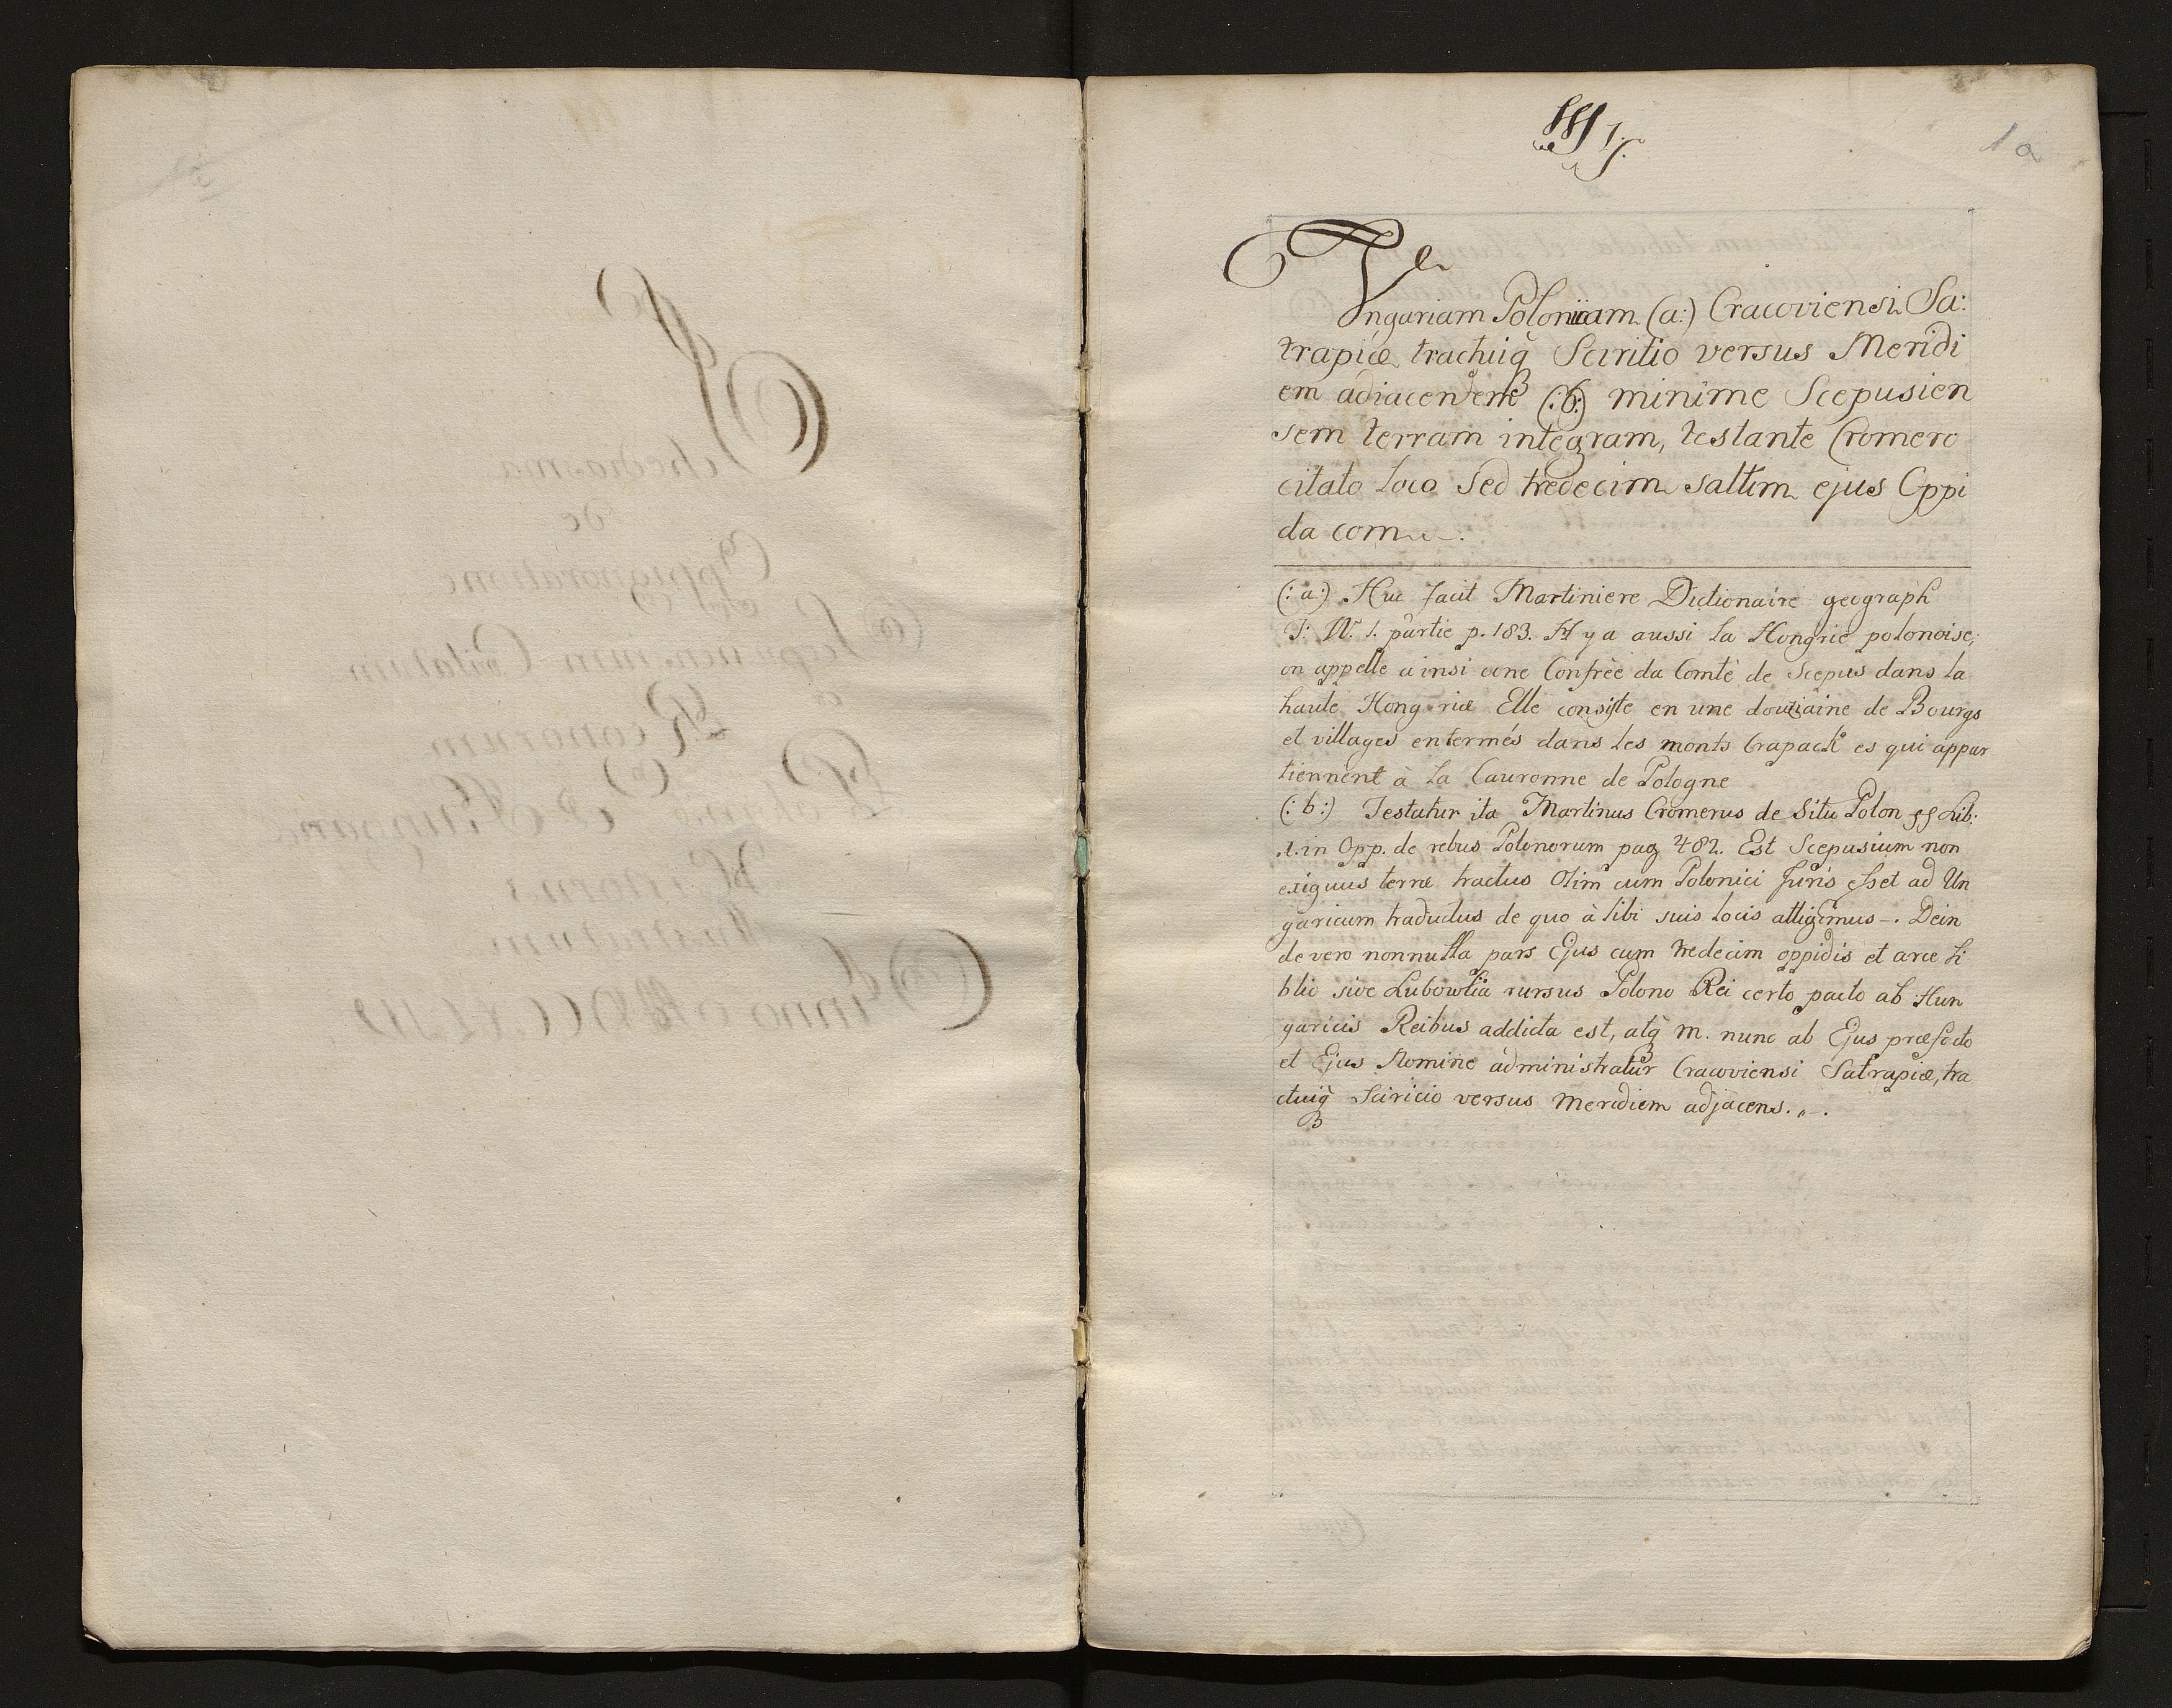 1a
§§ 1.
Ungariam Polonicam (a:) Cracoviensi Sa:
trapiæ tractuiq Sciritio versus Meridi
em adiacentem (:b:) minime Scepusien
sem terram integram, testante Cromero
citato loco sed tredecim saltim ejus Oppi
da com
(: a :) Huc facit Martiniere Dictionaire geograph
T. IV. 1. partie p. 183. Il y a aussi la Hongrie polonoise;
on appelle ainsi une Confrèe du Comté de Scepus dans la
haute Hongrie Elle consiste en une douziaine de Bourgs
et villages entermés dans les monts Crapacti es qui appar
tiennent à la Cauronne de Pologne
(: b :) Testatur ita Martinus Cromerus de Situ Polon Lib:
1. in Opp. de rebus Polonorum pag 482. Est Scepusium non
exiguus terræ tractus Olim cum Polonici Juris esset ad Un
garicum traductus de quo à libi suis locis attigimus -. Dein
de vero nonnulla pars Ejus cum tredecim oppidis et arce Li
blio sive Lubowlia rursus Polono Rei certo pacto ab Hun
garicis Reibus addicta est, atq m. nunc ab Ejus præfecto
et Ejus Nomine administratur Cracoviensi Satrapiæ, tra
ctuiq Sciricio versus meridiem adjacens.